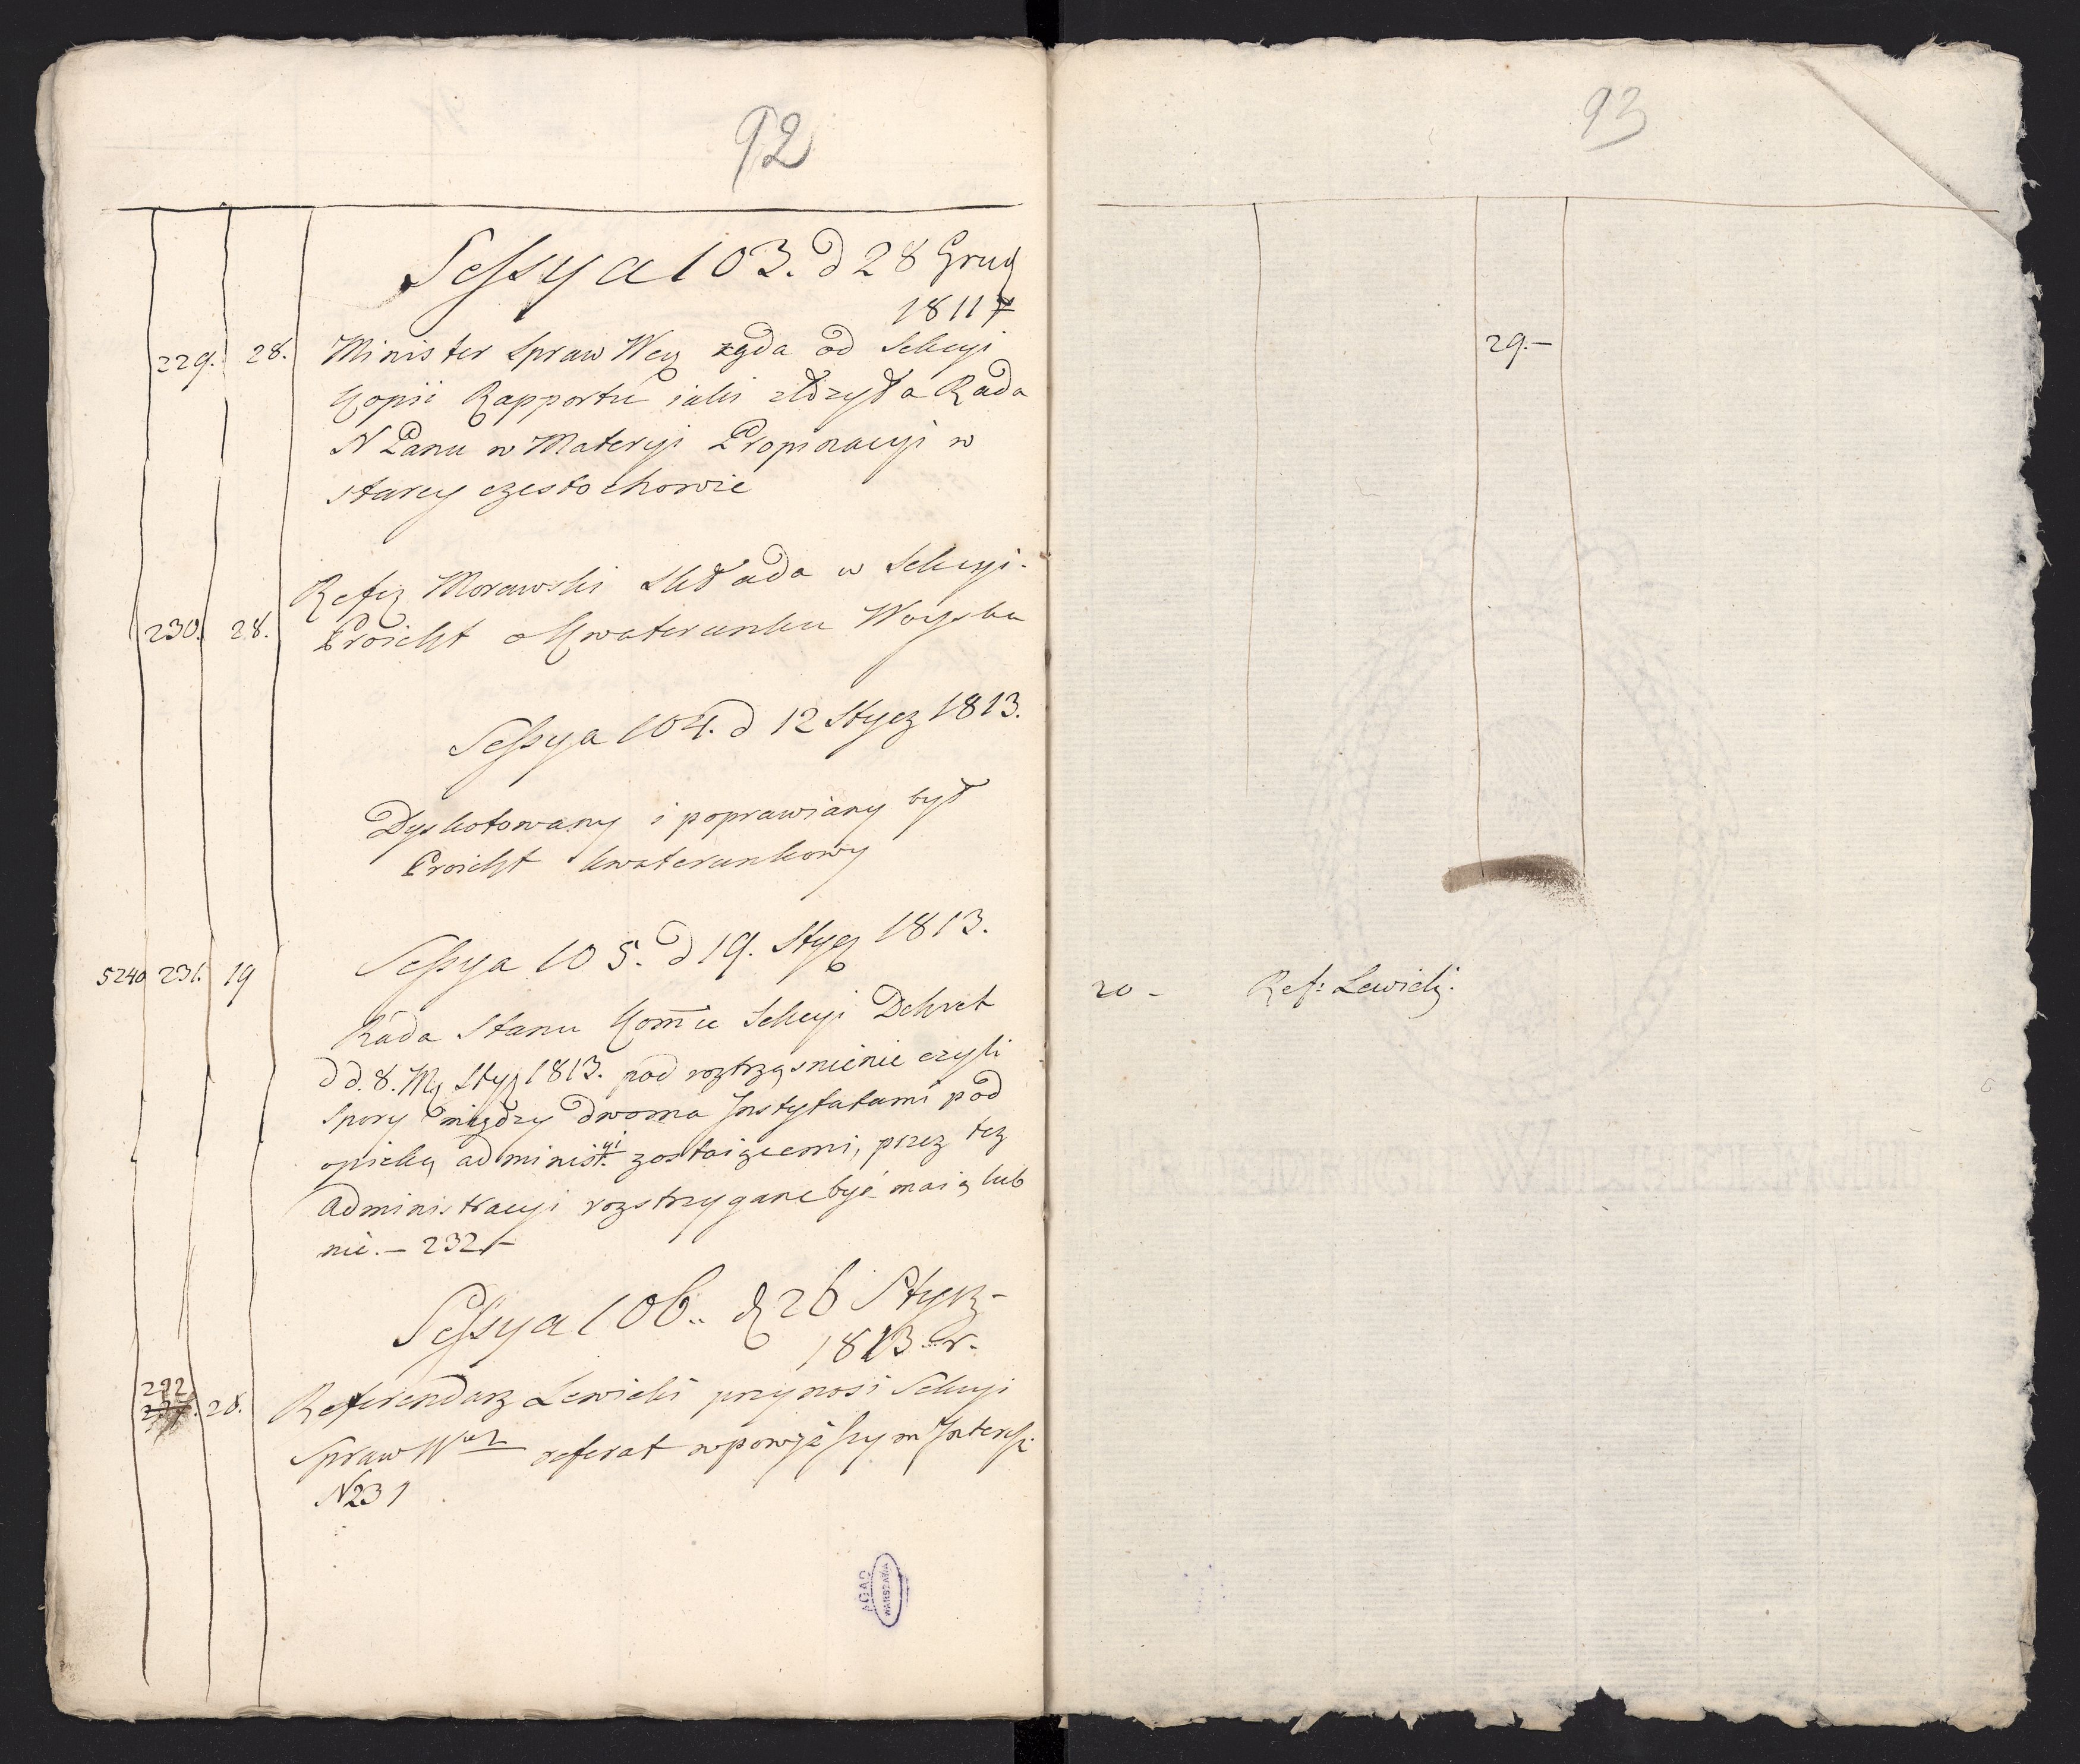 92
Sessya 103. d 28 Grud
1811
229. 28. Minister Spraw Wew żąda od Sekcyi
Kopii Rapportu iaki złożyła Rada
N Panu w Materyi Propinacyi w
starey częstochowie
Refer Morawski składa w Sekcyi
230. 28. Proiekt o Kwaterunku Woyska
Sessya 104. d 12 Stycz 1813.
Dyskutowany i poprawiany był
Proiekt kwaterunkowy
Sessya 105. d 19. Stycz 1813.
5240 231. 19
Rada Stanu Kom̄ie Sekcyi Dekret
d d. 8. M. Stycz 1813. pod roztrząsnienie czyli
Spory między dwoma Instytutami pod
opieką administ.yi zostaiącemi, przez tez
Administracyi rozstrzygane być maią lub
nie. – 232 –
Sessya 106.. d 26 Stycz-
1813 r.
292
28. Referendarz Lewicki przynosi Sekcyi
Spraw Wew referat w powyższym Interessie
N231
AGAD
WARSZAWA
93
29.–
20 – Ref: Lewicki.